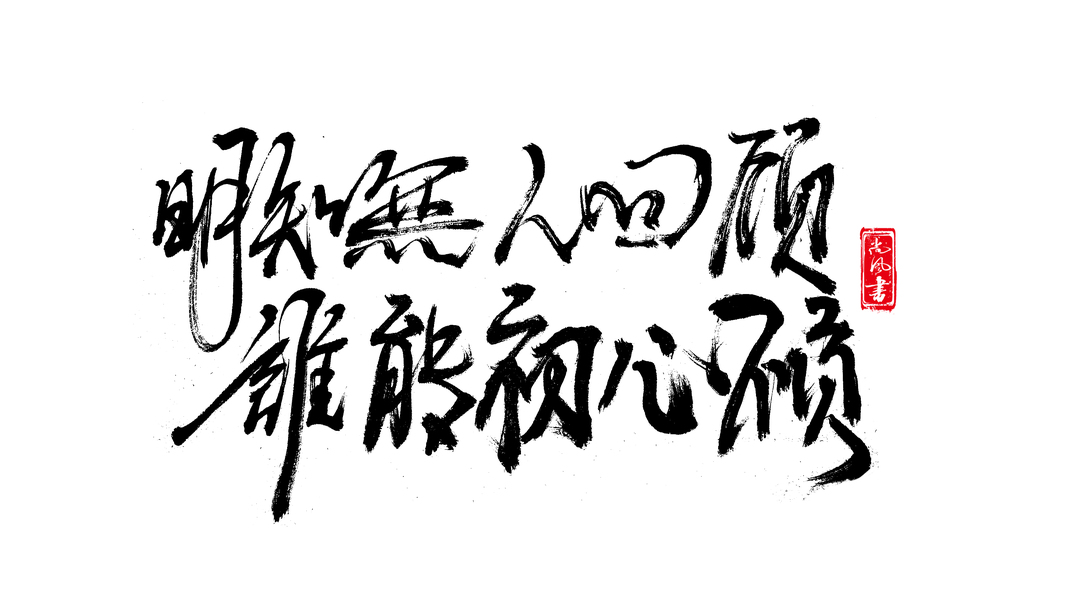 明知無人回顾
誰能初心不負
尚风書